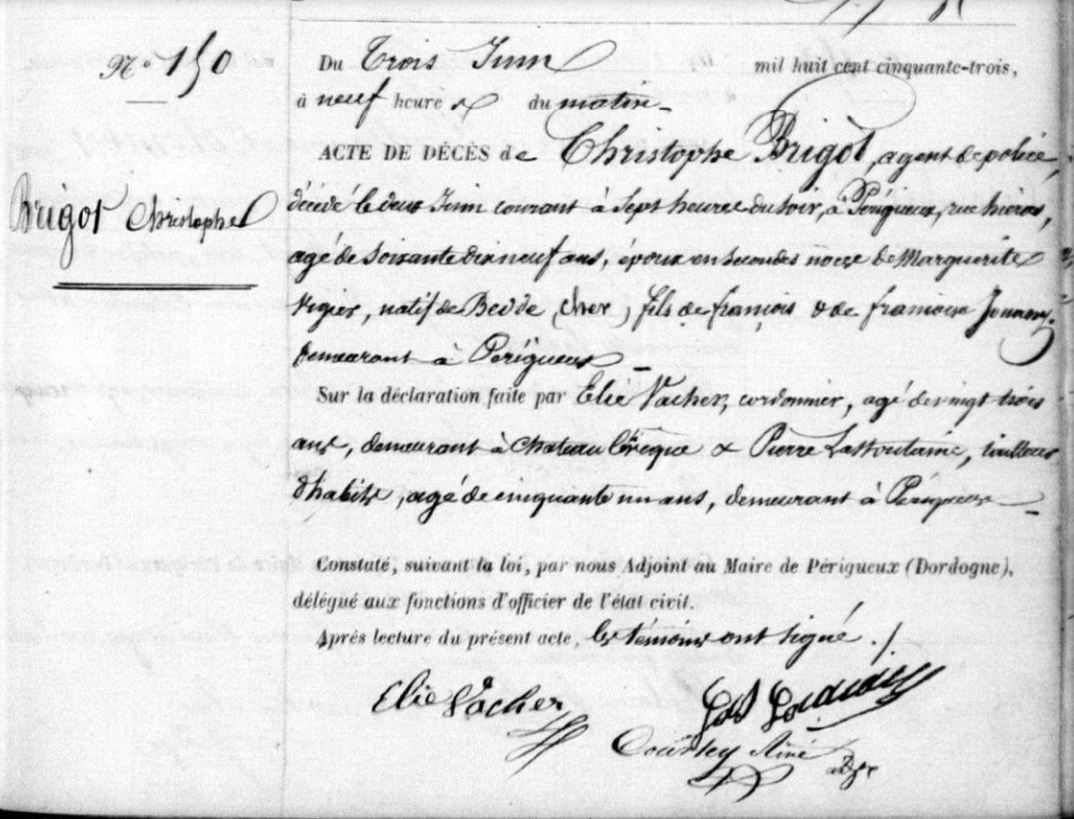 N° 150
Brigot Christophe
Du Trois Juin mil huit cent cinquante-trois,
à neuf heures du matin
ACTE DE DÉCÈS de Christophe Brigot, agent de police,
décédé le deux Juin courant à Sept heures du soir, à Périgueux, rue
agé de soixante dix neuf ans, époux en secondes noces de Marguerite
Vigier, natif de (Cher), fils de françois & de françoise
demeurant à Périgueux
Sur la déclaration faite par Elie Vacher, cordonnier, agé de vingt trois
ans, demeurant à Chateau l'Evêque & Pierre tailleur
d'habits, agé de cinquante un ans, demeurant à Périgueux
Constaté, suivant la loi, par nous Adjoint au Maire de Périgueux (Dordogne),
délégué aux fonctions d'officier de l'état civil.
Après lecture du présent acte, les témoins ont signé ./.
Elie Vacher